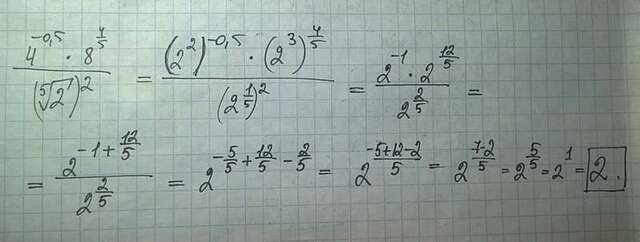 \frac{4^{-0,5} \cdot 8^{\frac{4}{5}}}{(\sqrt[5]{2^1})^2} = \frac{(2^2)^{-0,5} \cdot (2^3)^{\frac{4}{5}}}{(2^{\frac{1}{5}})^2} = \frac{2^{-1} \cdot 2^{\frac{12}{5}}}{2^{\frac{2}{5}}} =
= \frac{2^{-1+\frac{12}{5}}}{2^{\frac{2}{5}}} = 2^{-\frac{5}{5}+\frac{12}{5}-\frac{2}{5}} = 2^{\frac{-5+12-2}{5}} = 2^{\frac{7-2}{5}} = 2^{\frac{5}{5}} = 2^1 = 2.